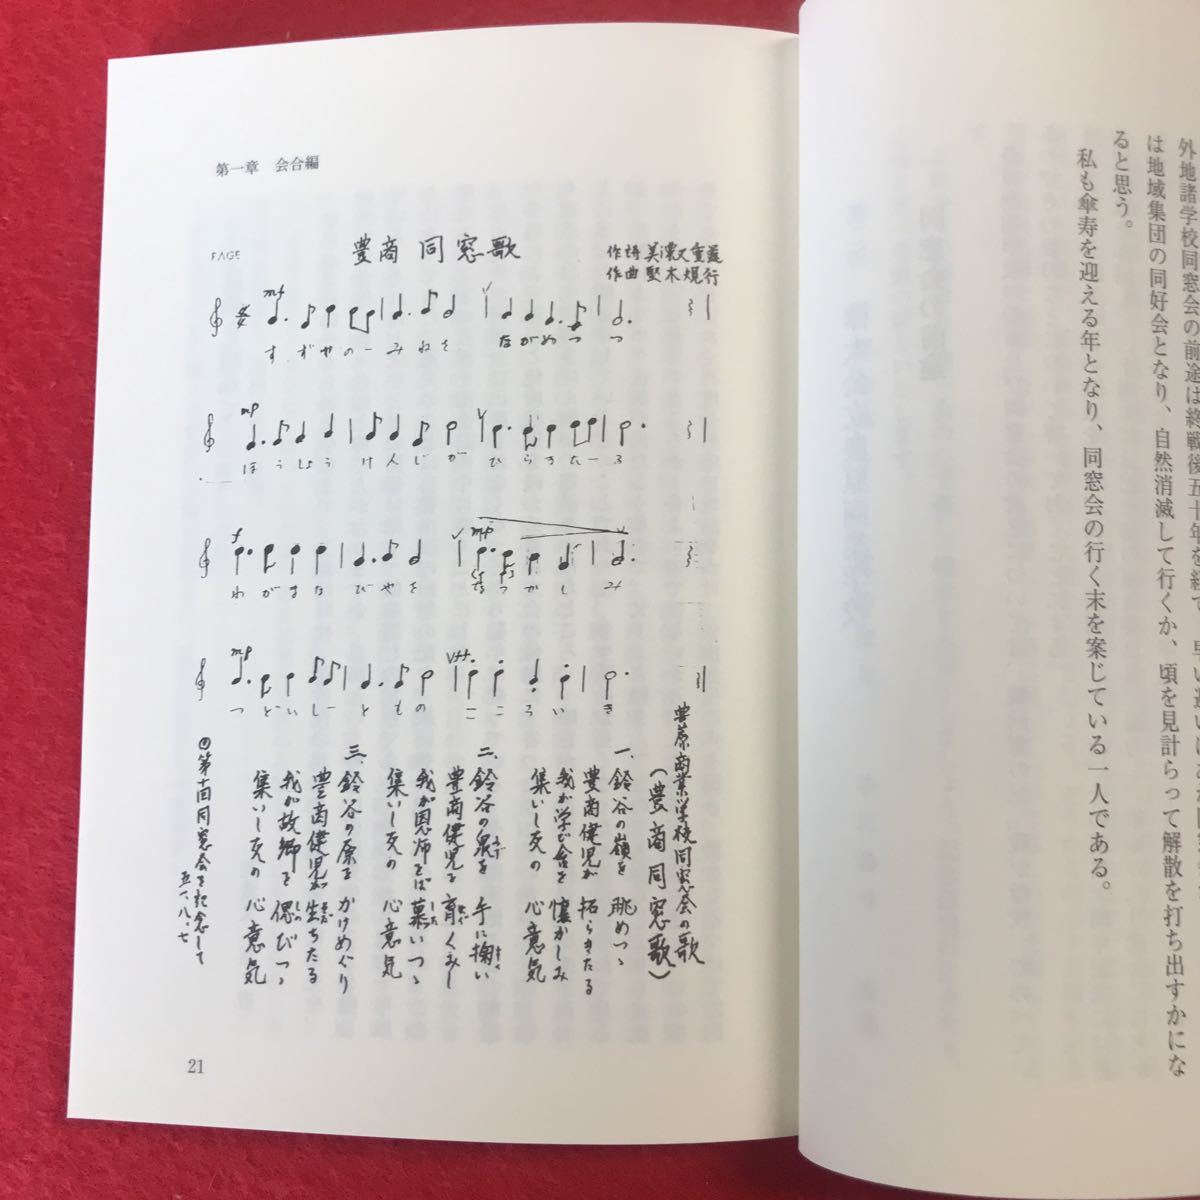 外地諸学校同窓会の前途は終戦後五十年を経て、早い遅いは
は地域集団の同好会となり、自然消滅して行くか、頃を見計らって解散を打ち出すかにな
ると思う。
私も傘寿を迎える年となり、同窓会の行く末を案じている一人である。
第一章 会合編
FAGE
豊商 同窓歌
作詩 美濃又重義
作曲 堅木規行
mf
すずやのーみねを ながめつつ
mp
ほうしょうけんじが ひらきたーる
f
mp
わがまなびやを なつかしみ
mp
つどいしーともの こころいき
豊原商業学校同窓会の歌
(豊商同窓歌)
一、鈴谷の嶺を 眺めつゝ
豊商健児が 拓らきたる
我が学び舎を 懐かしみ
集いし友の 心意気
二、鈴谷の泉を 手に掬い
豊商健児を 育くみし
我が恩師をば 慕いつゝ
集いし友の 心意気
三、鈴谷の原を かけめぐり
豊商健児が 生ちたる
我が故郷を 偲びつゝ
集いし友の 心意気
第十回同窓会を記念して
五一、八、七
21